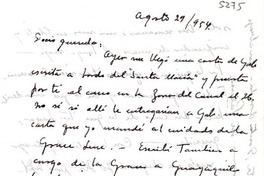 5275
Agosto 29/954
Doris querida:
Ayer me llegó una carta de Gab.
escrita a bordo del Santa María y puesta
por él al correo en la Zona del Canal el 26.
no sé si allí le entregarían a Gab. una
carta que yo mandé al cuidado de la
Grace Line. - Escribí también a
cargo de la Grace a Guayaquil